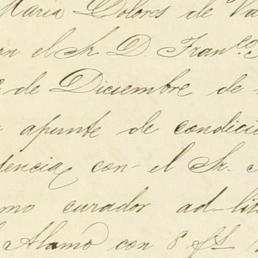 Maria Dolores de Va
on el Sr. D. Franco.
de Diciembre de
apunte de condicio
dencia, con el Sr.
mo curador ad-lite
Alamo con 8 fs.